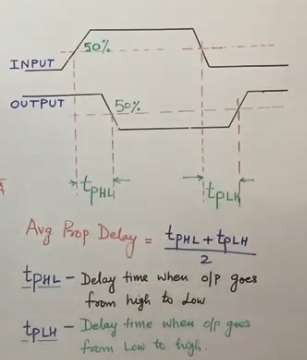 50%
INPUT
OUTPUT
50%
tPHL
tPLH
Avg Prop Delay = tPHL + tPLH
2
tPHL - Delay time when o/p goes
from high to Low
tPLH - Delay time when o/p goes
from Low to high.